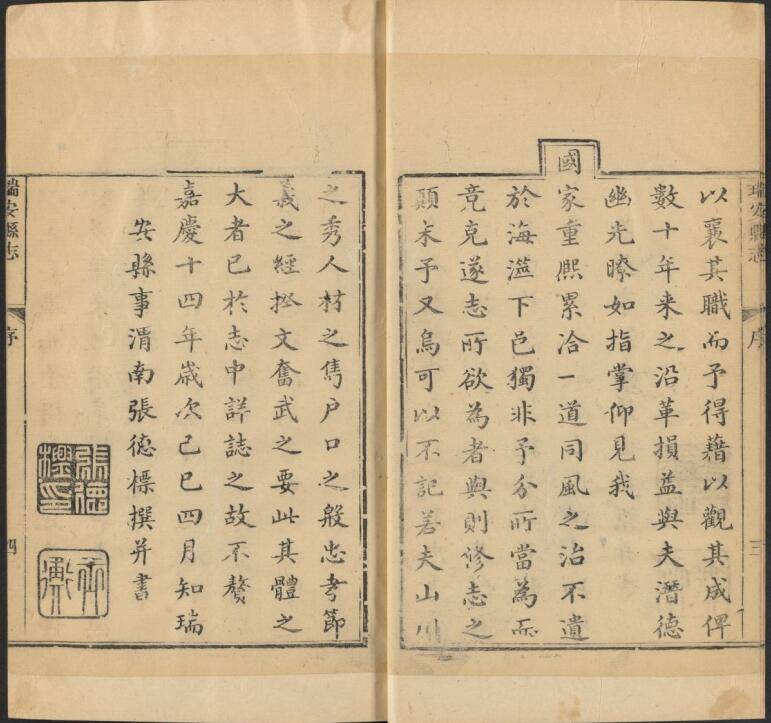 瑞安縣志
序
三
以襄其職而予得藉以觀其成俾
數十年来之沿革損益與夫潛德
幽光瞭如指掌仰見我
國家重熈累洽一道同風之治不遺
於海澨下邑獨非予分所當為而
竟克遂志所欲為者與則修志之
顛末予又烏可以不記若夫山川
之秀人材之雋户口之殷忠孝節
義之經掞文奮武之要此其體之
大者已於志中詳誌之故不贅
嘉慶十四年歲次己巳四月知瑞
安縣事渭南張德標撰并書
張德標印
瑞安縣志
序
四